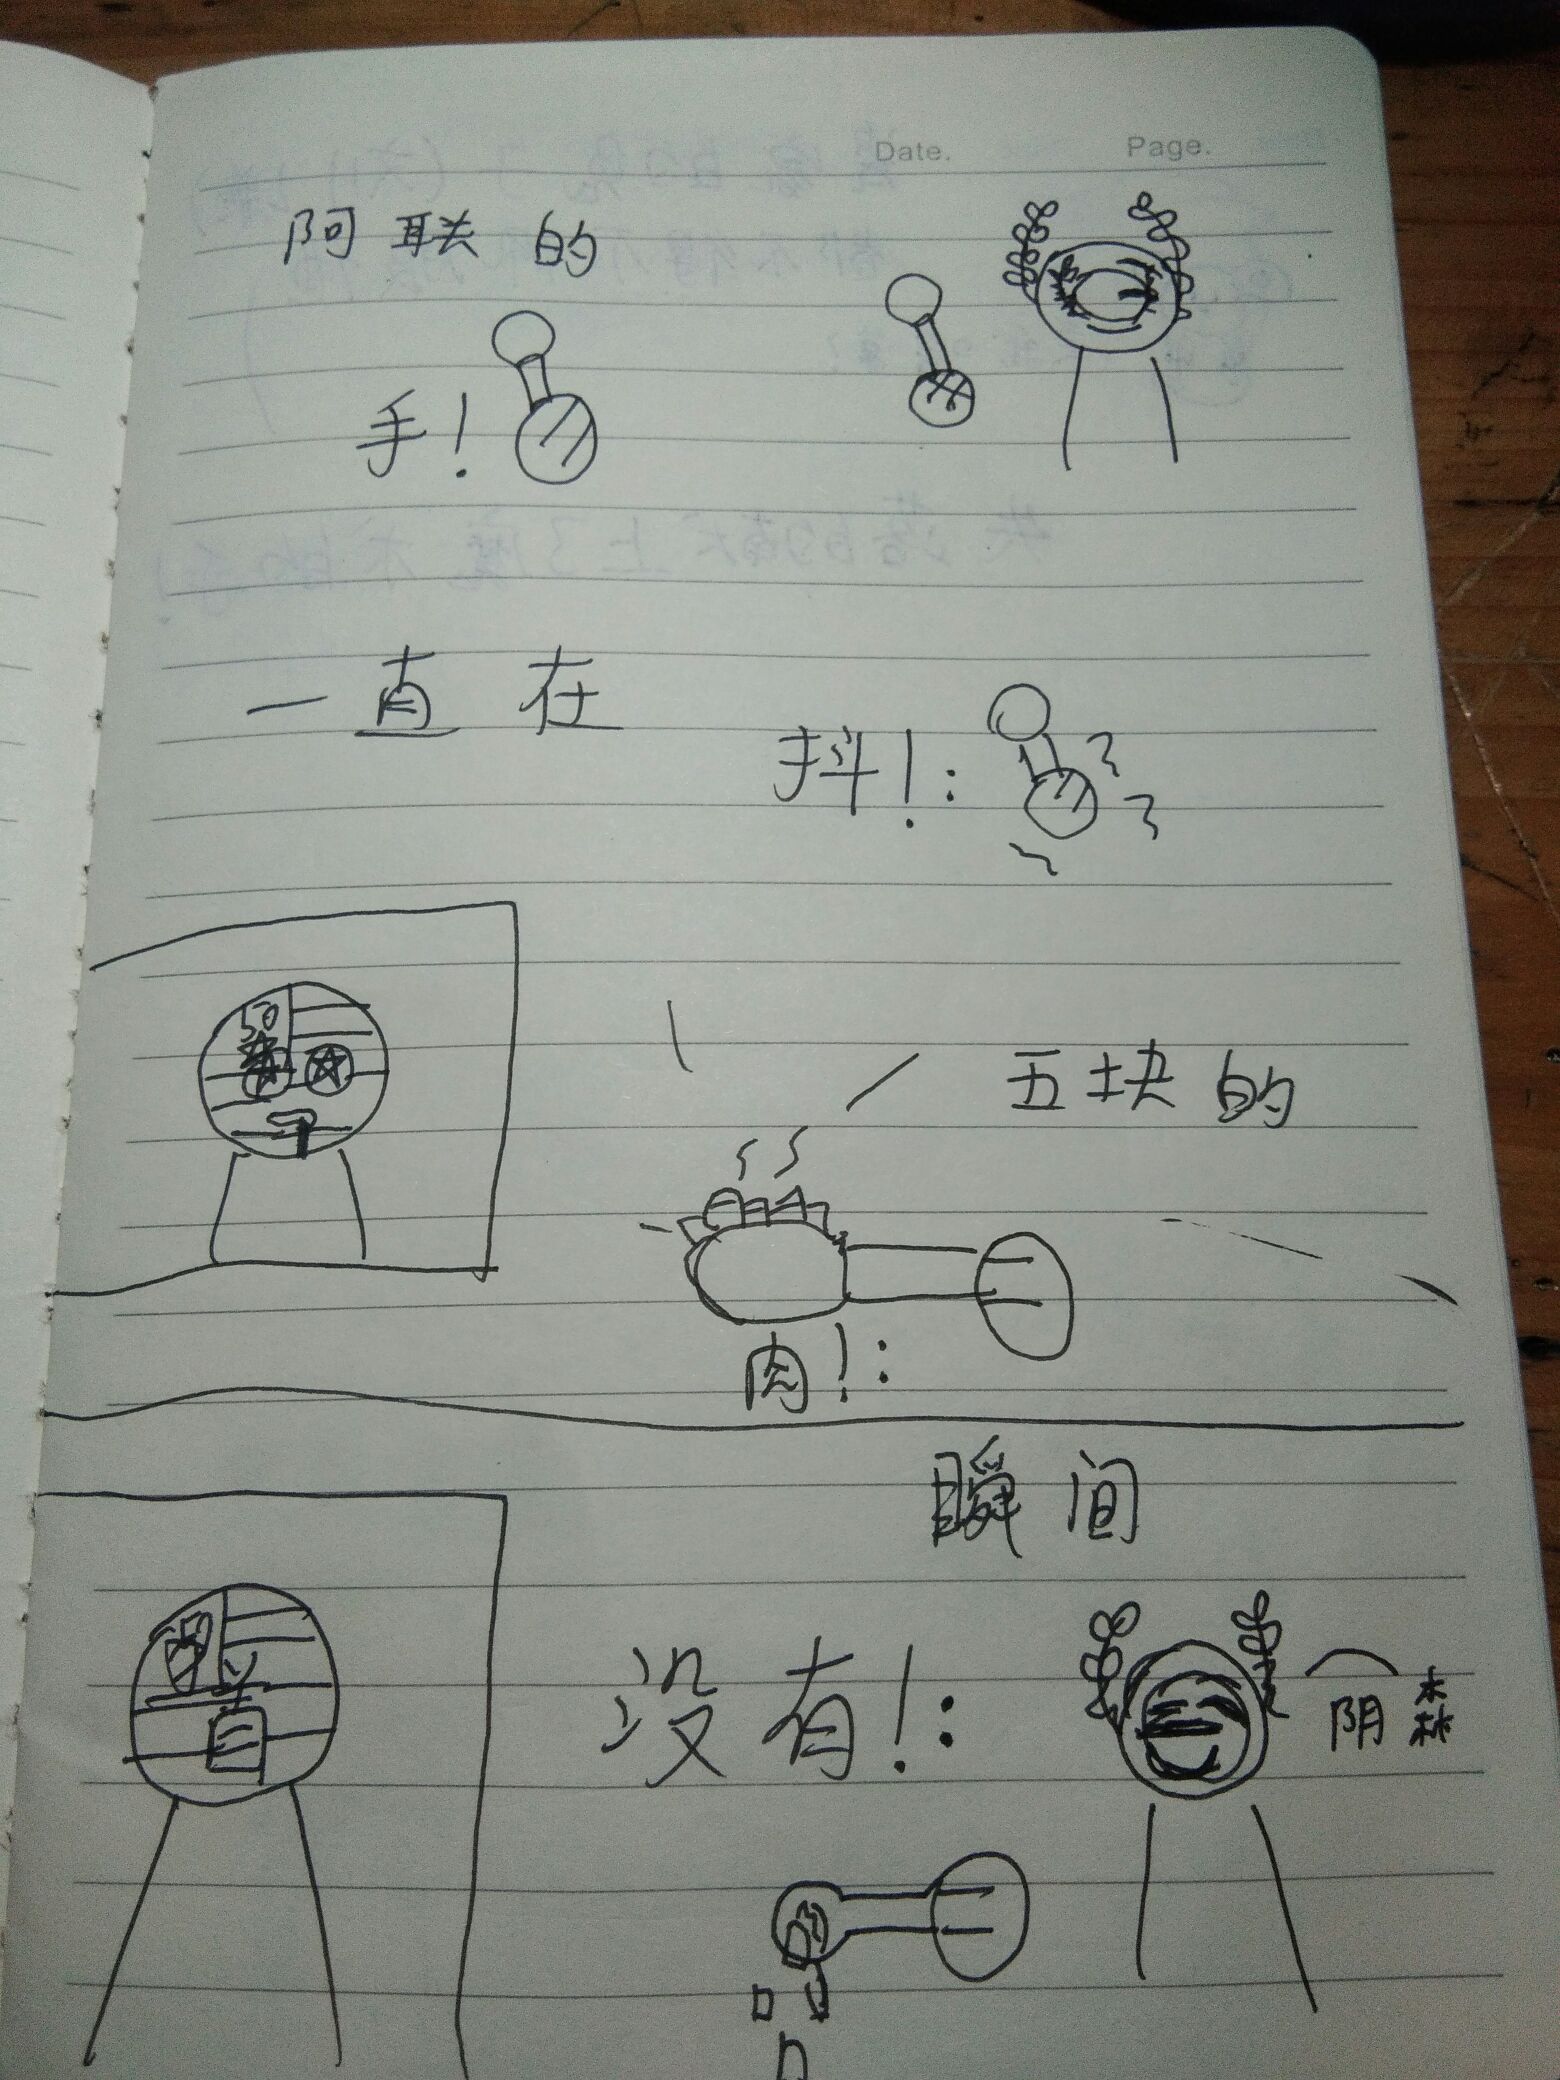 Date. Page.
阿联的
手!
一直在
抖!:
50
五块的
肉!:
瞬间
没有!:
阴森